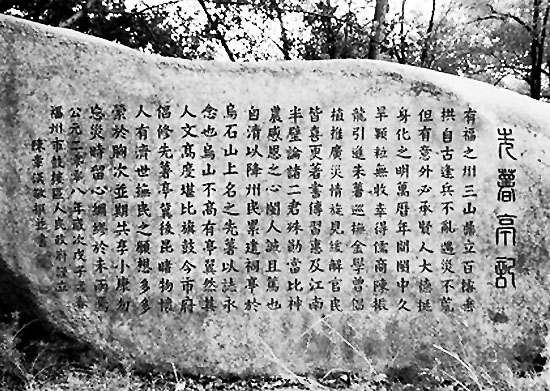 先薯亭記
有福之州三山鼎立百榕垂
拱自古逢兵不亂遇災不荒
但有意外必承賢人大德挺
身化之明萬曆年間閩中久
旱顆粒無收幸得儒商陳振
龍引進朱薯巡撫金學曾倡
植推廣災情旋見緩解官民
皆喜更著書傳習惠及江南
半壁論諸二君殊勛當比神
農感恩之心閩人誠且篤也
自清以降州民累建祠亭於
烏石山上名之先薯以誌永
念也烏山不高有亭翼然其
人文高度堪比旗鼓今市府
倡修先薯亭冀後昆睹物懷
人有濟世撫民之願想多多
縈於胸次並期共享小康勿
忘災時留心綢繆於未雨焉
公元二零零八年歲次戊子孟春
福州市鼓樓區人民政府謹立
陳章漢敬撰並書